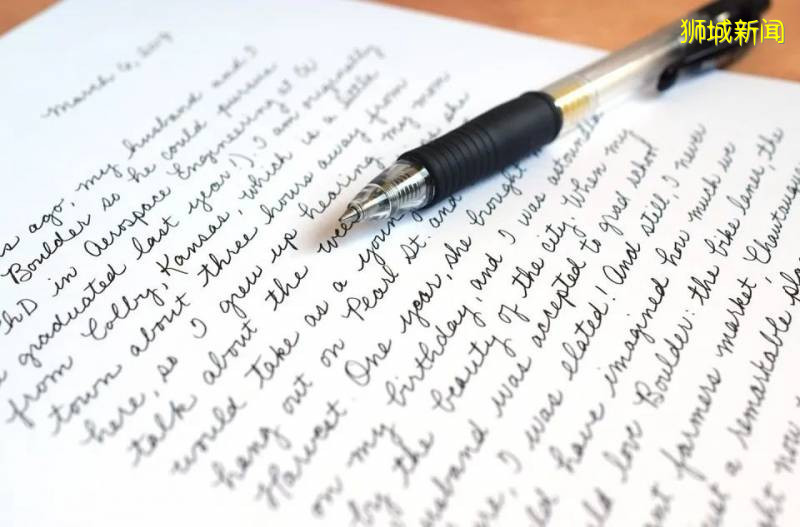 狮城新闻
March 6, 2019
ago, my husband and I
Boulder so he could pursue
PhD in Aerospace Engineering at CU
graduated last year!). I am originally
from Colby, Kansas, which is a little
town about three hours away from
here, so I grew up hearing my mom
talk about the she
would take as a young
hang out on Pearl St. and
Harvest. One year, she brought
on my birthday, and I was astounded
by the beauty of the city. When my
husband was accepted to grad school
I was elated! And still, I never
have imagined how much we
love Boulder: the bike lanes, the
farmers market, Chautauqua
a remarkable
now